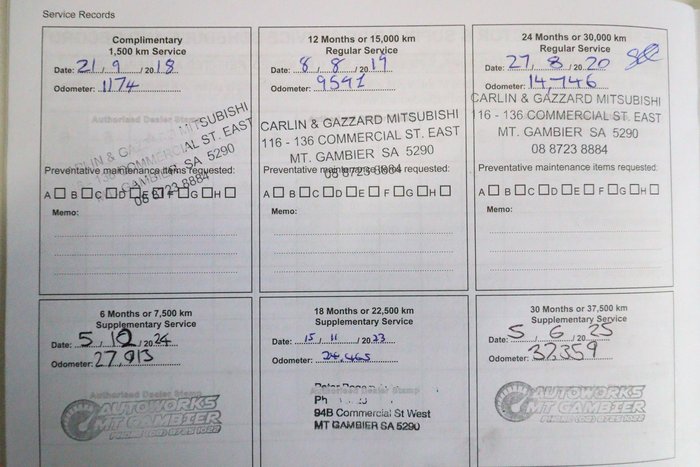 Service Records
Complimentary
1,500 km Service
Date: 21 / 9 / 2018
Odometer: 1174
Authorised Dealer Stamp
CARLIN & GAZZARD MITSUBISHI
116 - 136 COMMERCIAL ST. EAST
MT. GAMBIER SA 5290
08 8723 8884
Preventative maintenance items requested:
A B C D E F G H
Memo:
12 Months or 15,000 km
Regular Service
Date: 8 / 8 / 2019
Odometer: 9541
CARLIN & GAZZARD MITSUBISHI
116 - 136 COMMERCIAL ST. EAST
MT. GAMBIER SA 5290
08 8723 8884
Preventative maintenance items requested:
A B C D E F G H
Memo:
24 Months or 30,000 km
Regular Service
Date: 27 / 8 / 2020
Odometer: 14,746
CARLIN & GAZZARD MITSUBISHI
116 - 136 COMMERCIAL ST. EAST
MT. GAMBIER SA 5290
08 8723 8884
Preventative maintenance items requested:
A B C D E F G H
Memo:
6 Months or 7,500 km
Supplementary Service
Date: 5 / 12 / 2024
Odometer: 27,913
Authorised Dealer Stamp
AUTOWORKS
MT GAMBIER
PHONE (08) 8725 1022
18 Months or 22,500 km
Supplementary Service
Date: 15 / 11 / 2023
Odometer: 24,465
Dealer Stamp
94B Commercial St West
MT GAMBIER SA 5290
30 Months or 37,500 km
Supplementary Service
Date: 5 / 6 / 2025
Odometer: 32359
AUTOWORKS
MT GAMBIER
PHONE (08) 8725 1022